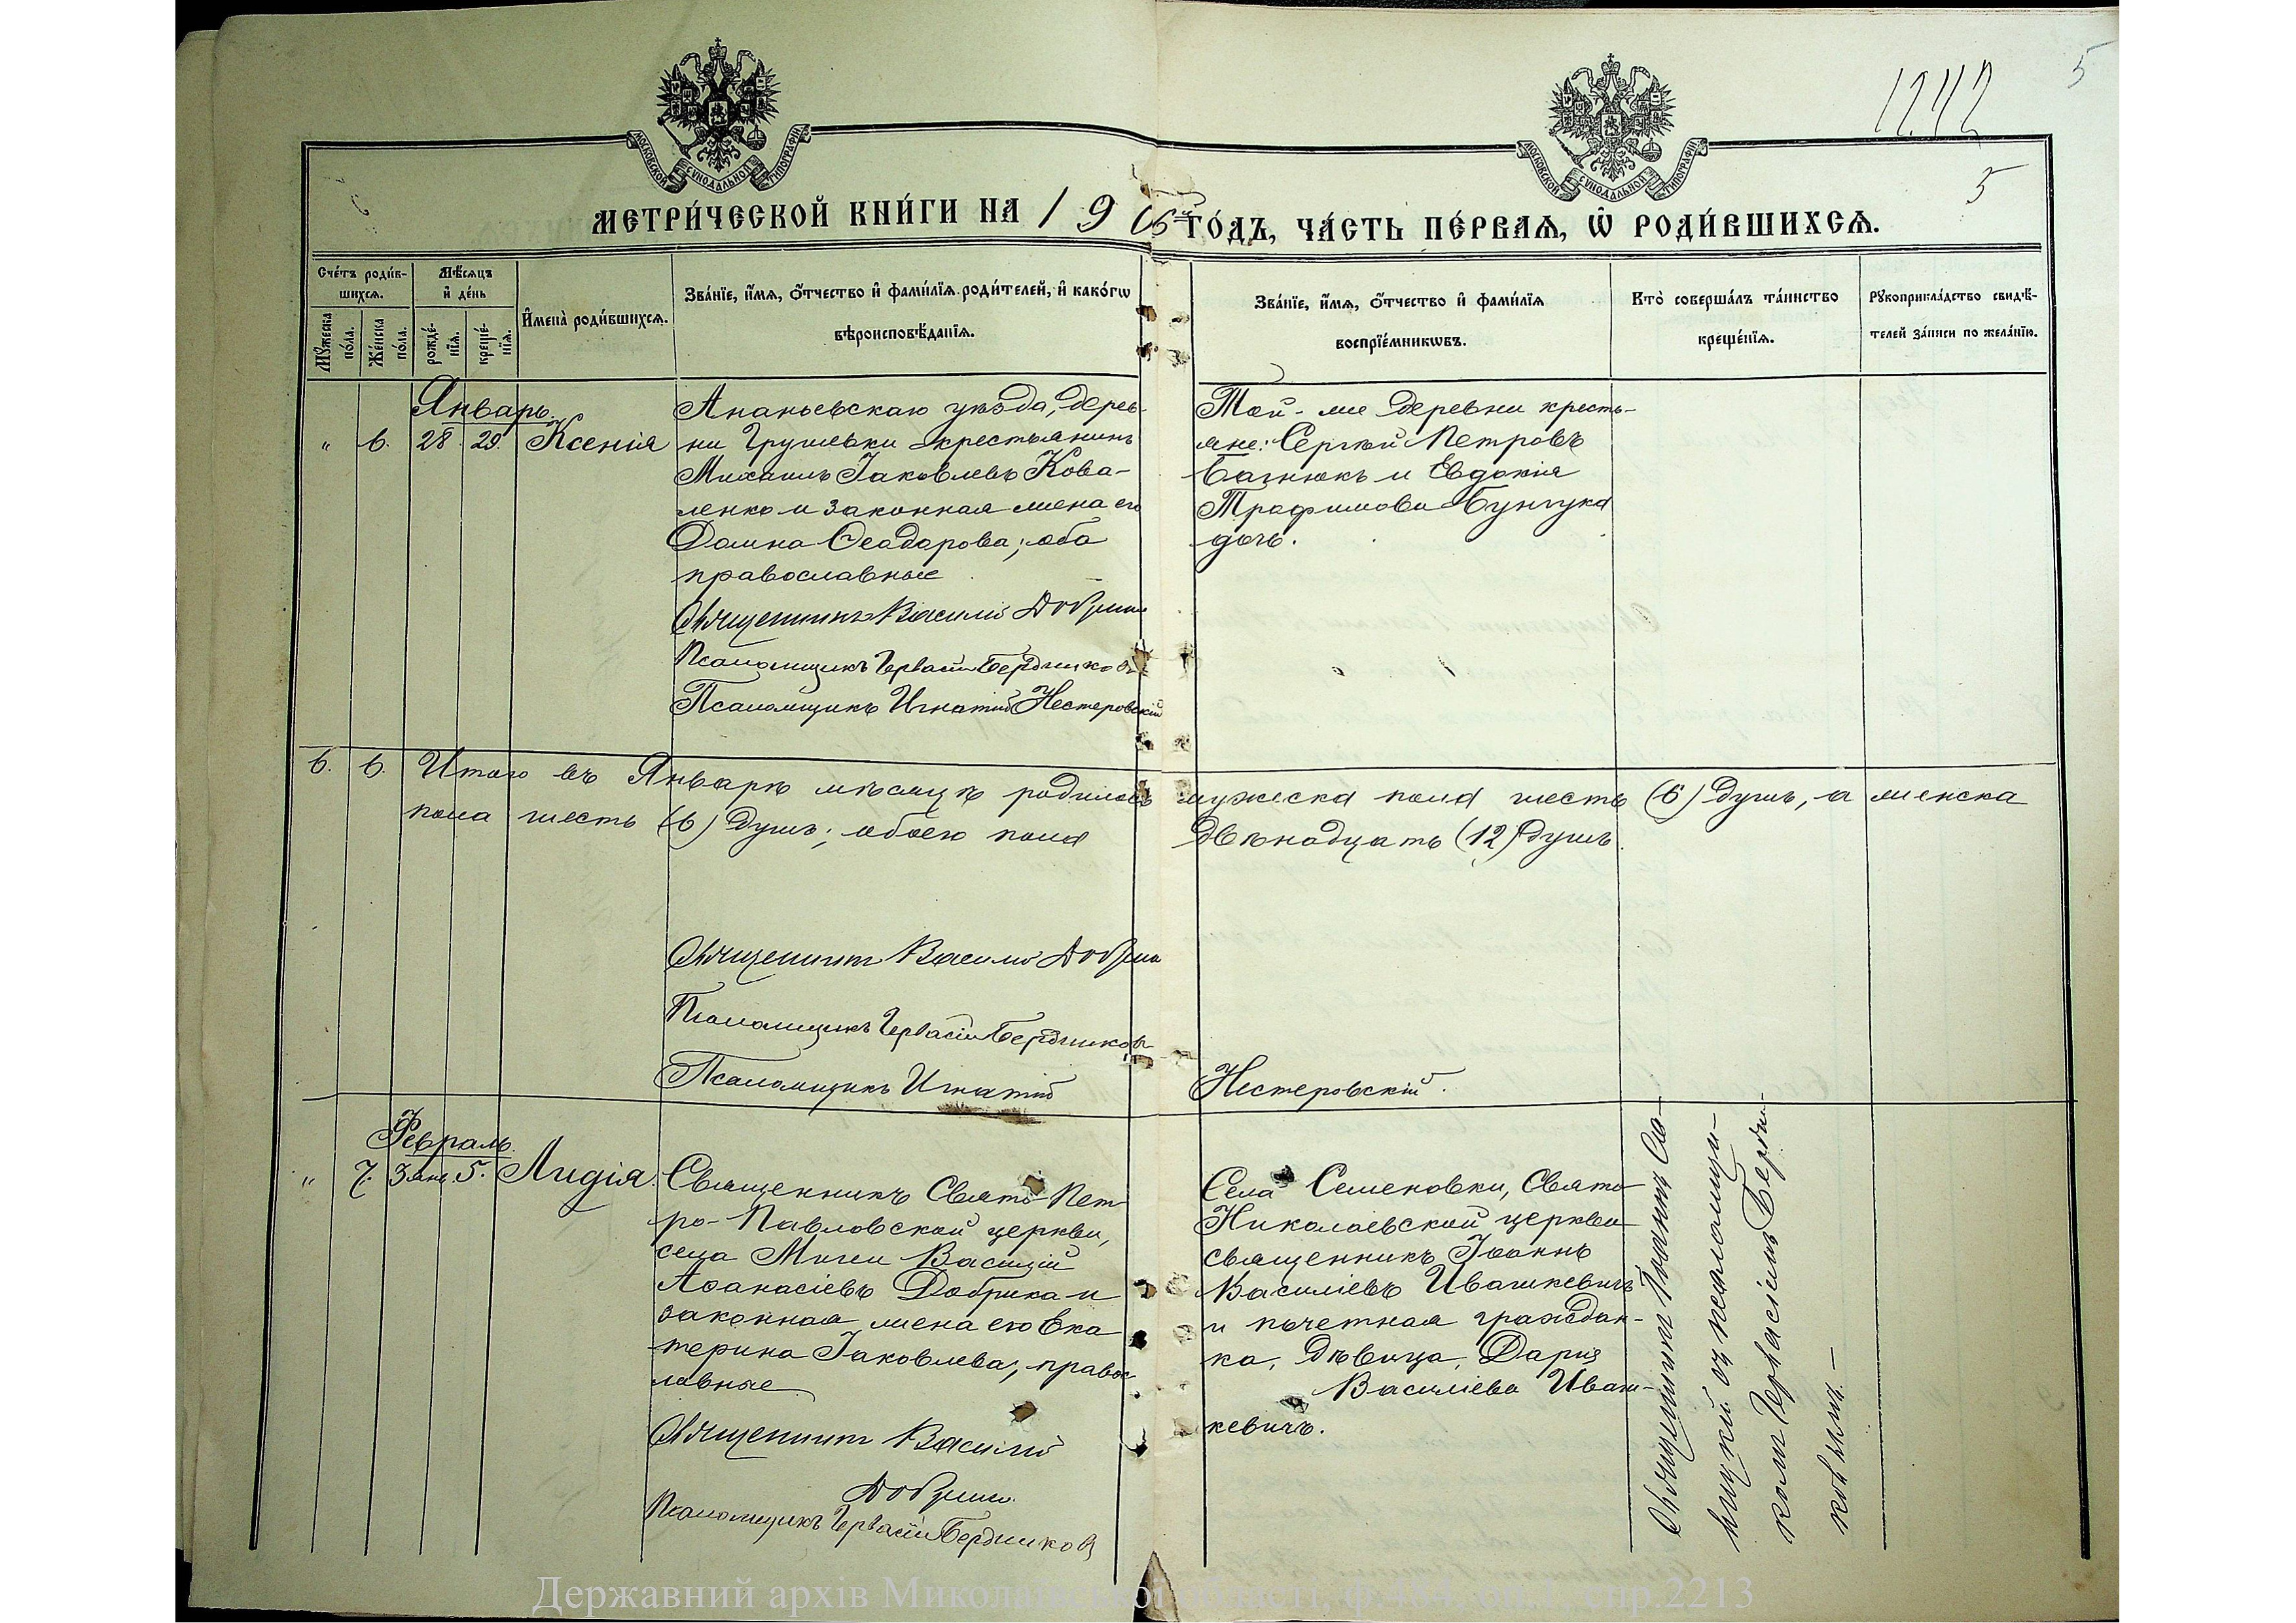 5
1242
5
МОСКОВСКОЙ СѴНОДАЛЬНОЙ ТИПОГРАФІИ
МОСКОВСКОЙ СѴНОДАЛЬНОЙ ТИПОГРАФІИ
МЕТРИ́ЧЕСКОЙ КНИ́ГИ НА 1905 ГО́ДЪ, ЧА́СТЬ ПЕ́РВАЯ, Ѡ РОДИ́ВШИХСѦ.
Сче́тъ роди́в-
шихсѧ.
Мꙋ́жеска по́ла.
Же́нска по́ла.
Мѣ́сѧцъ
и҆ де́нь
рожде́-нїѧ.
креще́-нїѧ.
И҆мена̀ роди́вшихсѧ.
Зва́нїе, и҆́мѧ, ѻ҆́тчество и҆ фами́лїѧ роди́телей, и҆ како́гѡ
вѣроисповѣ́данїѧ.
Зва́нїе, и҆́мѧ, ѻ҆́тчество и҆ фами́лїѧ
воспрїе́мникѡвъ.
Кто̀ соверша́лъ та́инство
креще́нїѧ.
Рꙋкоприкла́дство свидѣ́-
телей за́писи по жела́нїю.
Январь.
" 6. 28 29. Ксенія
Ананьевскаго уѣзда, дерев-
ни Грушевки крестьянинъ
Михаилъ Іаковлевъ Кова-
ленко и законная жена его
Домна Ѳеодорова; оба
православные
Священникъ Василій Добрика
Псаломщикъ Гервасій Бердниковъ
Псаломщикъ Игнатій Нестеровскій
Той-же деревни кресть-
яне: Сергѣй Петровъ
Багнюкъ и Евдокія
Трофимова Бунчука
дочь.
6. 6. Итого въ Январѣ мѣсяцѣ родилось мужеска пола шесть (6) душъ, а женска
пола шесть (6) душъ; обоего пола двѣнадцать (12) душъ.
Священникъ Василій Добрика
Псаломщикъ Гервасій Бердниковъ
Псаломщикъ Игнатій Нестеровскій.
Февраль.
" 7. 3 янв. 5. Лидія.
Священникъ Свято-Пет-
ро-Павловской церкви,
села Мигеи Василій
Аѳанасіевъ Добрика и
законная жена его Ека-
терина Іаковлева; правос-
лавные
Священникъ Василій
Добрика.
Псаломщикъ Гервасій Бердниковъ
Села Семеновки, Свято-
Николаевской церкви
священникъ Іоаннъ
Василіевъ Ивашкевичъ
и почетная граждан-
ка, дѣвица, Дарія
Василіева Иваш-
кевичъ.
Священникъ Іоаннъ
съ псаломщи-
комъ Гервасіемъ Бердни-
ковымъ.—
Державний архів Миколаївської області, ф.484, оп.1, спр.2213